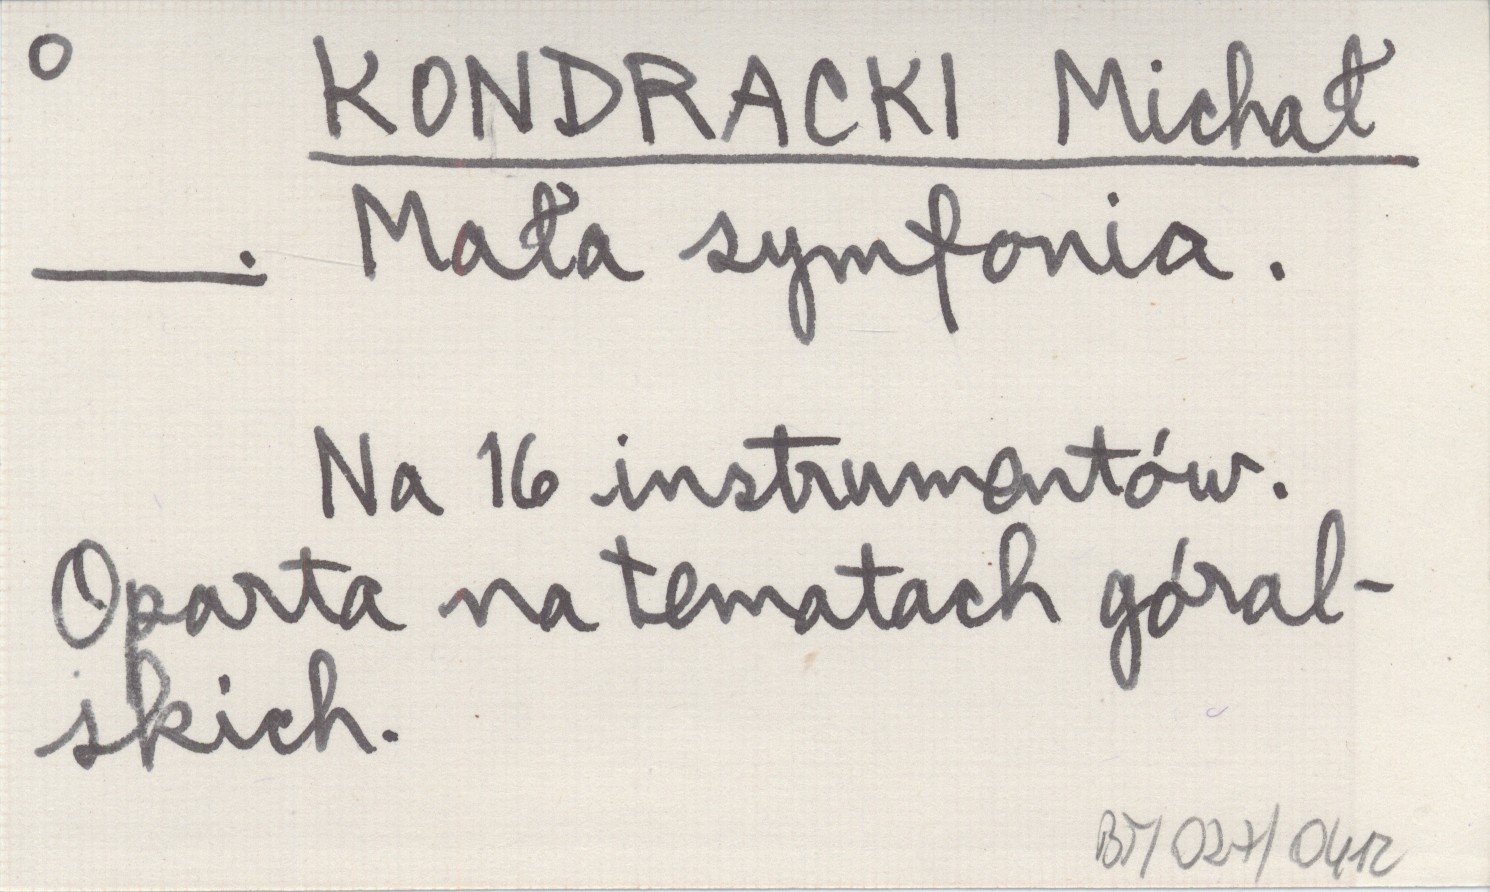 o KONDRACKI Michał
____. Mała symfonia.
Na 16 instrumentów.
Oparta na tematach góral-
skich.
BT/027/0412